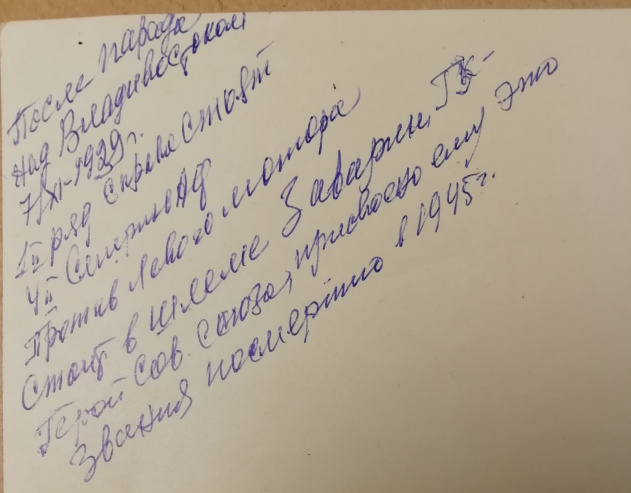 После парада
над Владивостоком
7/XI-1939 г.
1й ряд справа стоят
4й Смирнов АФ
Против левого мотора
Стоит в шлеме Заварин, ГК-
Герой Сов. Союза, присвоено ему это
Звания посмертно в 1945 г.